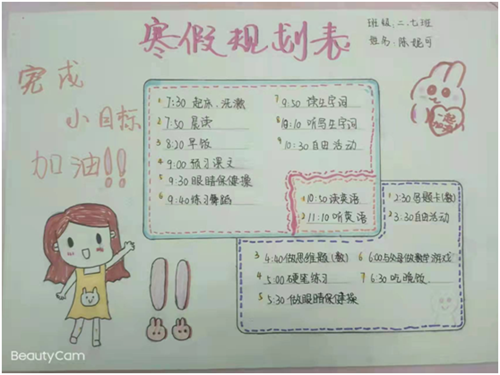 寒假规划表
班级：二.七班
姓名：陈妮可
完成
小目标
加油!!
1 7:30 起床、洗漱
2 7:50 晨读
3 8:20 早饭
4 9:00 预习课文
5 9:30 眼睛保健操
6 9:40 练习舞蹈
7 9:50 读生字词
8 10:10 听写生字词
9 10:30 自由活动
1 10:50 读英语
2 11:10 听英语
1 2:30 答题卡(数)
2 3:30 自由活动
3 4:40 做思维题(数)
4 5:00 硬笔练习
5 5:30 做眼睛保健操
6 6:00 与父母做数学游戏
7 6:30 吃晚饭
BeautyCam